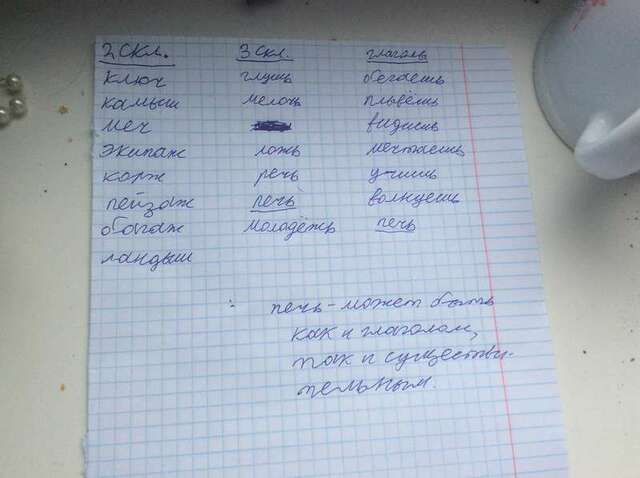 2 скл. 3 скл. глаголы
ключ глушь обегаешь
камыш мелочь плывёшь
меч видишь
экипаж ложь мечтаешь
корж речь учишь
пейзаж печь волнуешь
обагаж молодёжь печь
ландыш
печь - может быть
как и глаголом,
так и существи-
тельным.